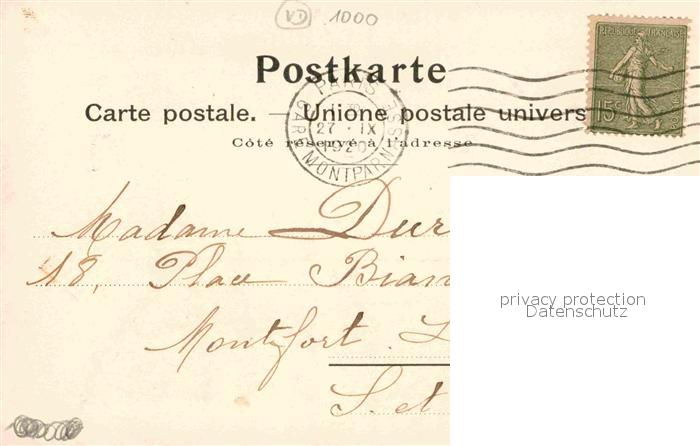 VD 1000
REPUBLIQUE FRANÇAISE
15c
Postkarte
Carte postale. — Unione postale univers
Côté réservé à l'adresse.
PARIS
27 · IX
1920
GARE MONTPARNASSE
Madame Dur
18, Place Bian
Montfort L
S. et
privacy protection
Datenschutz